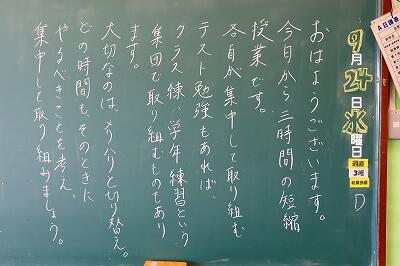 9月24日水曜日
週直
3班
D
おはようございます。
今日から三時間の短縮
授業です。
各自が集中して取り組む
テスト勉強もあれば、
クラス練、学年練習という
集団で取り組むものもあり
ます。
大切なのは、メリハリと切り替え。
どの時間も、そのときに
やるべきことを考え、
集中して取り組みましょう。